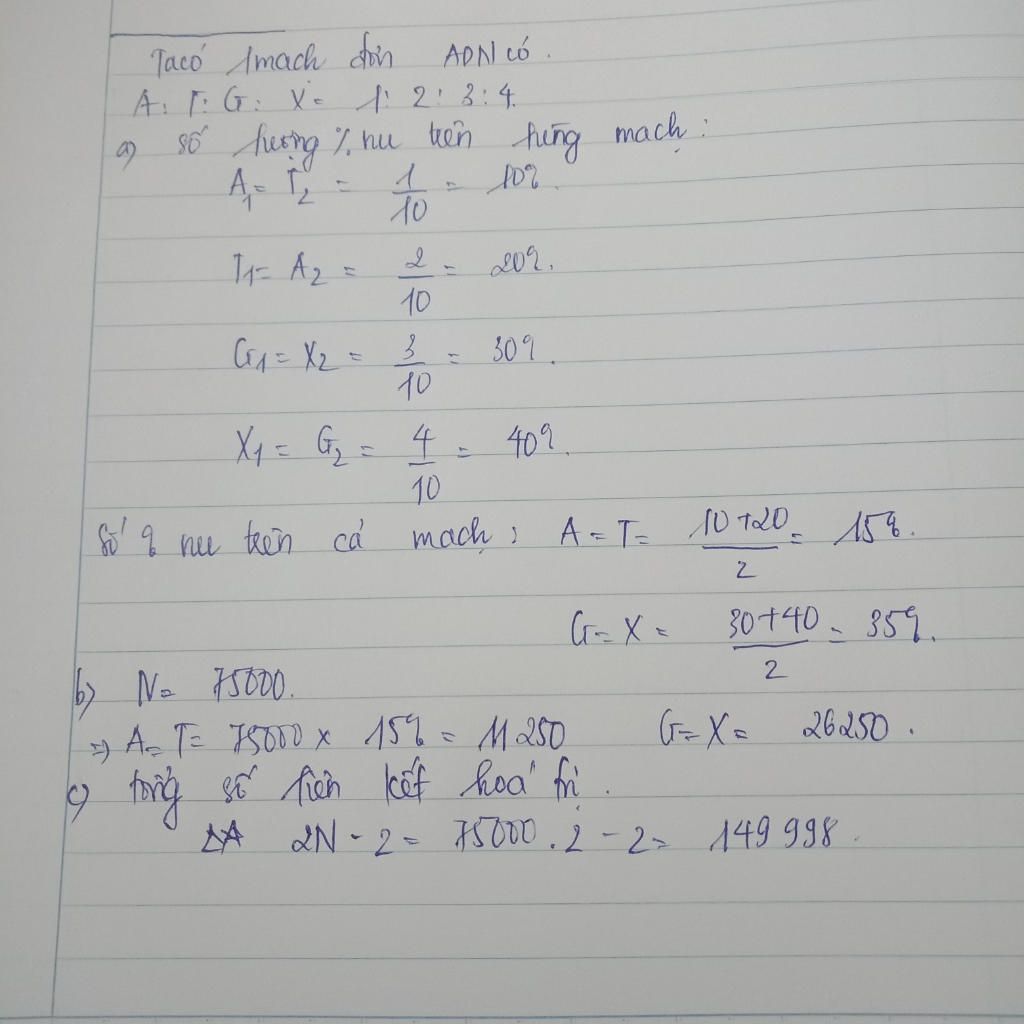 Ta có 1 mạch đơn ADN có.
A: T: G: X = 1: 2: 3: 4.
a) Số lượng % nu trên từng mạch:
A1 = T2 = 1/10 = 10%.
T1 = A2 = 2/10 = 20%.
G1 = X2 = 3/10 = 30%.
X1 = G2 = 4/10 = 40%.
Số % nu trên cả mạch: A = T = (10+20)/2 = 15%.
G = X = (30+40)/2 = 35%.
b) N = 75000.
=> A = T = 75000 x 15% = 11250 G = X = 26250.
c) tổng số liên kết hoá trị.
2N - 2 = 75000 . 2 - 2 = 149 998.